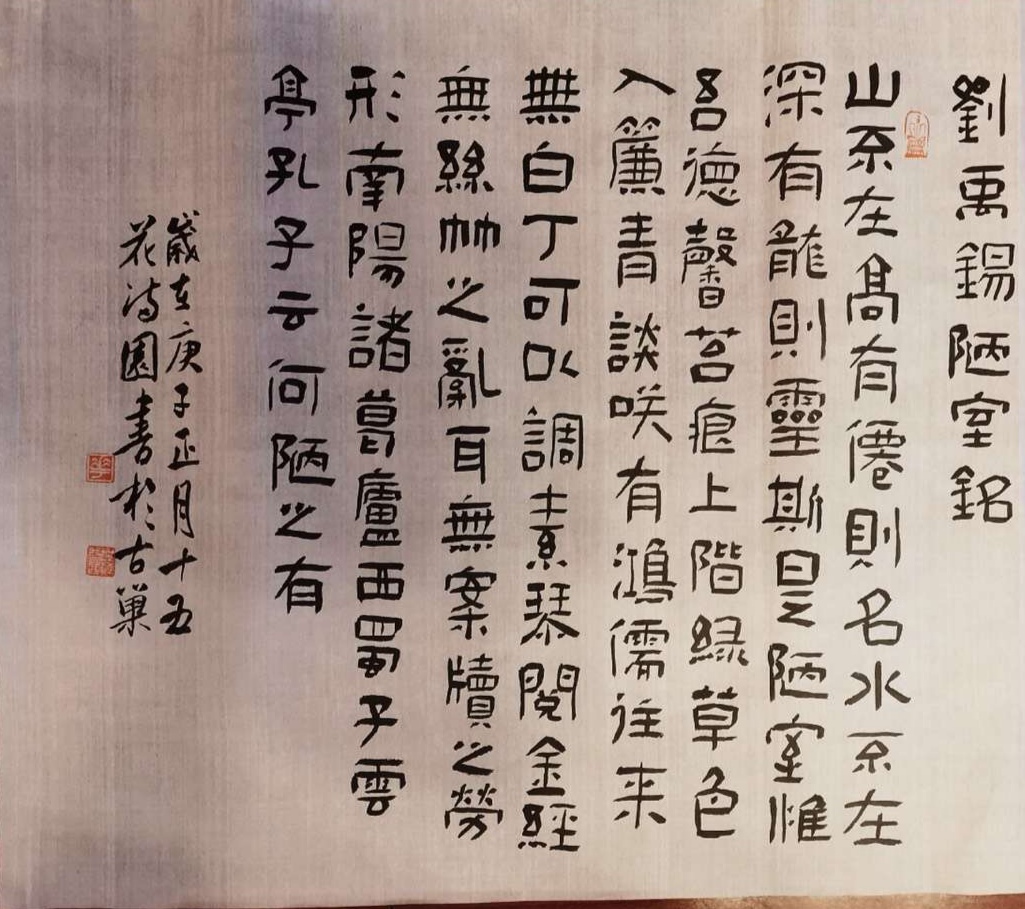 劉禹錫陋室銘
山不在高有僊則名水不在
深有龍則靈斯是陋室惟
吾德馨苔痕上階綠草色
入簾青談咲有鴻儒往来
無白丁可以調素琴閱金經
無絲竹之亂耳無案牘之勞
形南陽諸葛廬西蜀子雲
亭孔子云何陋之有
歲在庚子正月十五
花詩園書於古巢